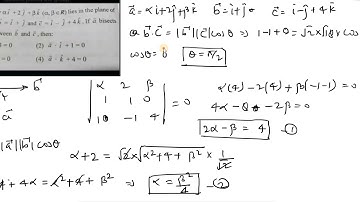 i + 2j + βk (α, β ∈ R) lies in the plane of
i + j and c = i - j + 4k. If a bisects
between b and c, then:
= 0 (2) a · i + 1 = 0
= 0 (4) a · k + 4 = 0
a = αi + 2j + βk b = i + j c = i - j + 4k
b · c = |b||c| cosθ ⇒ 1 - 1 + 0 = √2 × √18 × cos
cosθ = 0 θ = π/2
b
a
| α 2 β |
| 1 1 0 |
| 1 -1 4 | = 0
α(4) - 2(4) + β(-1-1) = 0
4α - 8 - 2β = 0
2α - β = 4 - ①
|a||b| cosθ
α + 2 = √2 × √(α² + 4 + β²) × 1/√2
4 + 4α = α² + 4 + β² ⇒ α = β²/4 - ②